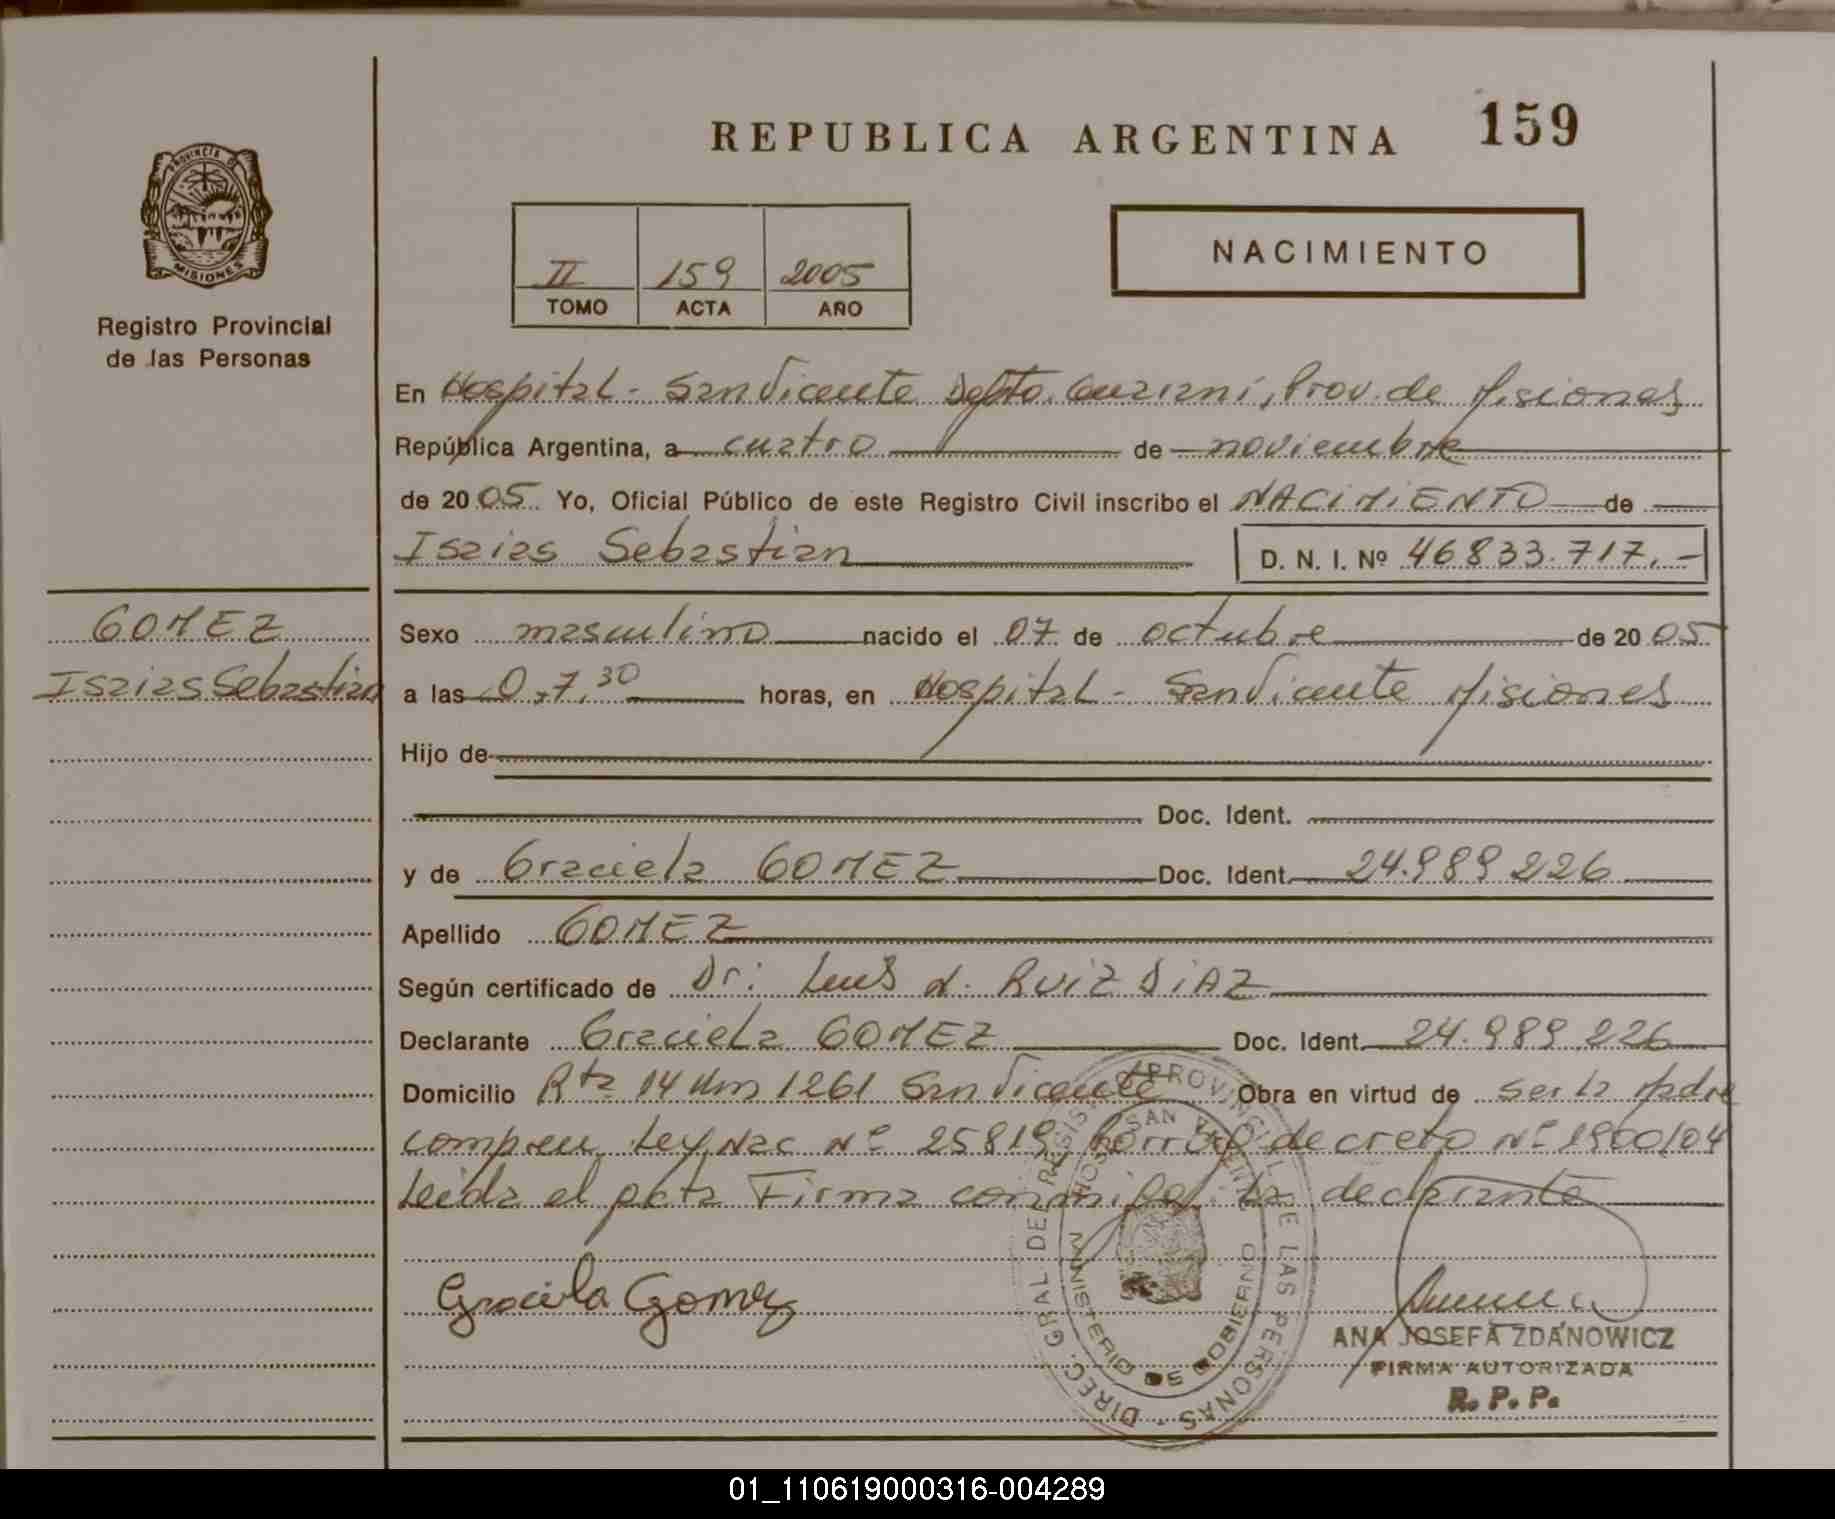 REPUBLICA ARGENTINA 159
PROVINCIA DE
MISIONES
Registro Provincial
de las Personas
NACIMIENTO
II 159 2005
TOMO ACTA AÑO
En Hospital - San Vicente Depto. Guarani, Prov. de Misiones
República Argentina, a cuatro de noviembre
de 2005. Yo, Oficial Público de este Registro Civil inscribo el NACIMIENTO de
Isaias Sebastian D. N. I. Nº 46833.717.-
GOMEZ
Isaias Sebastian
Sexo masculino nacido el 07 de octubre de 2005
a las 07,30 horas, en Hospital - San Vicente Misiones
Hijo de
Doc. Ident.
y de Graciela GOMEZ Doc. Ident. 24.989.226
Apellido GOMEZ
Según certificado de Dr: Luis N. RUIZ DIAZ
Declarante Graciela GOMEZ Doc. Ident. 24.989.226
Domicilio Rta 14 Km 1261 San Vicente Obra en virtud de ser la Madre
Ley Nac Nº 25819 decreto Nº 1900/04
Leida el acta Firma conmigo la declarante
Graciela Gomez
DIREC. GRAL DEL REGISTRO PROVINCIAL DE LAS PERSONAS
HOSP. SAN VICENTE
MINISTERIO DE GOBIERNO
ANA JOSEFA ZDANOWICZ
FIRMA AUTORIZADA
R. P. P.
01_110619000316-004289